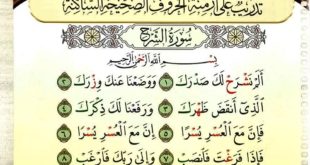 تدريب على أزمنة الحروف الصحيحة الساكنة
سُورَةُ الشَّرْحِ
بِسْمِ اللَّهِ الرَّحْمَٰنِ الرَّحِيمِ
أَلَمْ نَشْرَحْ لَكَ صَدْرَكَ ١ وَوَضَعْنَا عَنكَ وِزْرَكَ ٢
الَّذِي أَنقَضَ ظَهْرَكَ ٣ وَرَفَعْنَا لَكَ ذِكْرَكَ ٤
فَإِنَّ مَعَ الْعُسْرِ يُسْرًا ٥ إِنَّ مَعَ الْعُسْرِ يُسْرًا ٦
فَإِذَا فَرَغْتَ فَانصَبْ ٧ وَإِلَىٰ رَبِّكَ فَارْغَب ٨